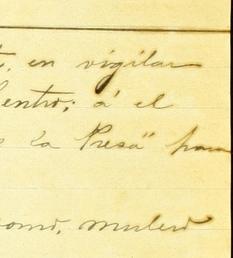 en vigilar
dentro; á el
la Presa" para
como, mulero